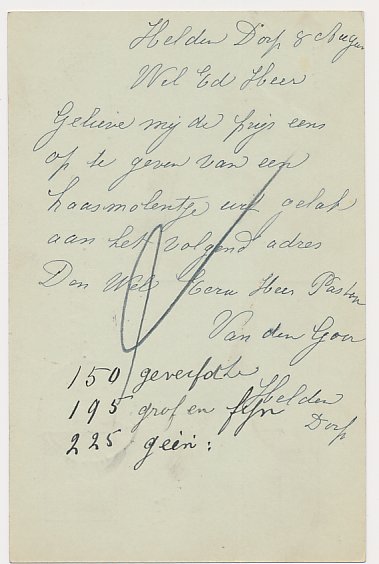 Helden Dorp 8 Augus
Wel Ed Heer
Gelieve mij de prijs eens
op te geven van een
haasmolentje uit gelak
aan het volgend adres
Den Wel Eerw Heer Pastoor
Van den Goor
Helden
Dorp
150 geverfde
195 grof en fijn
225 geëm: